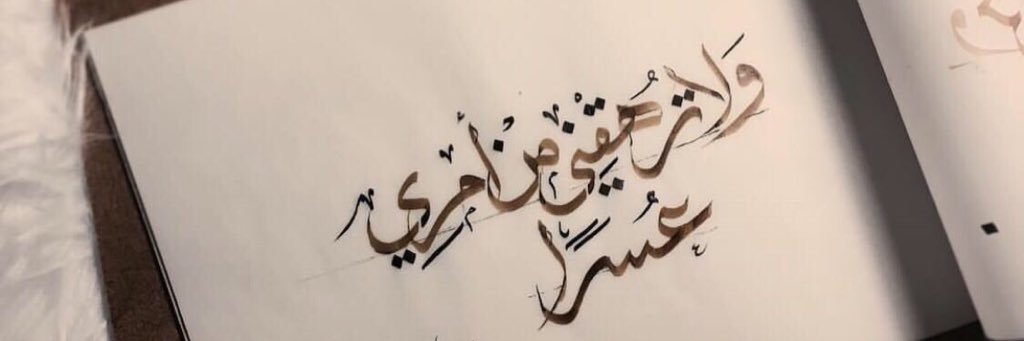 وَلا تُرهُقِني مِنْ أمري
عُسرًا